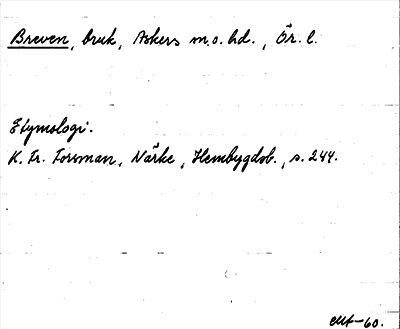 Breven, bruk, Askers m.o. hd., Ör. l.
Etymologi.
K. Fr. Forsman, Närke, Hembygdsb., s. 244.
-60.